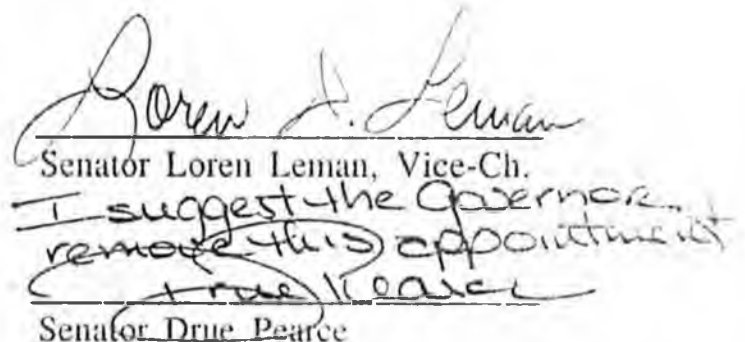 Loren D. Leman
Senator Loren Leman, Vice-Ch.
I suggest the Governor
remove this appointment
Drue Pearce
Senator Drue Pearce